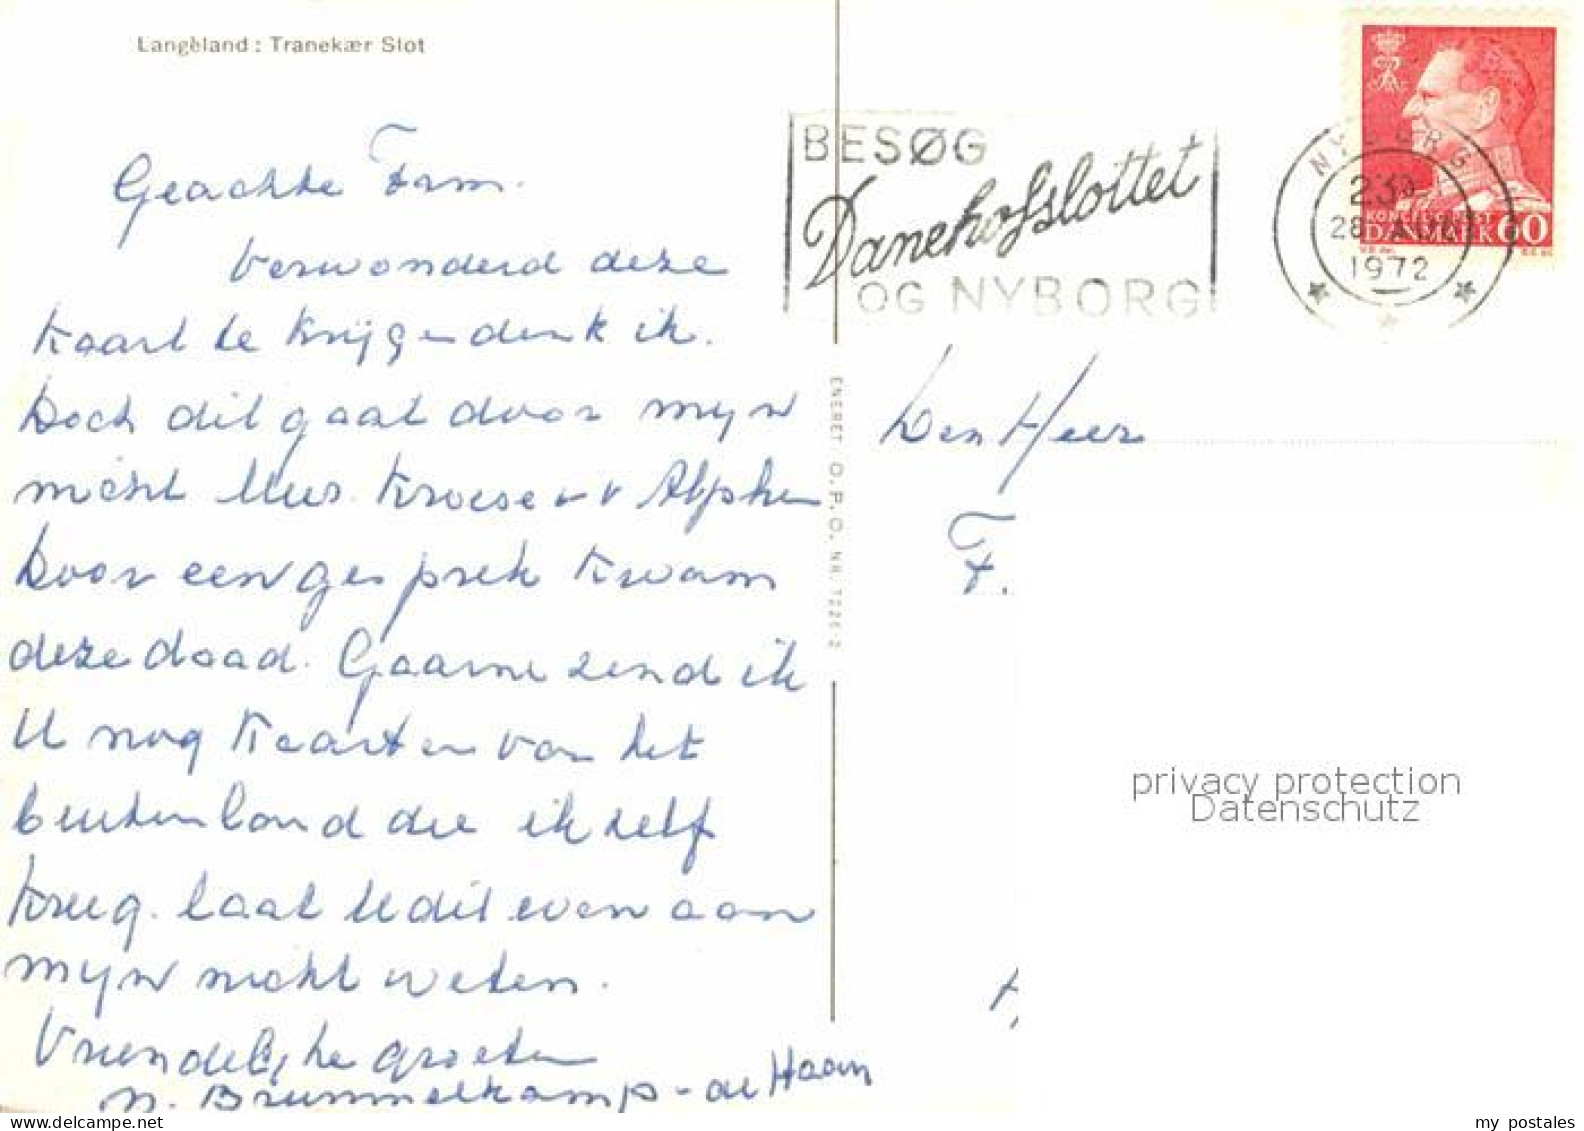 Langeland : Tranekær Slot
BESØG
Danehofslottet
OG NYBORG
NYBORG
28
1972
KONGELIGT
DANMARK 60
Geachte Fam.
Verwonderd deze
kaart te krijgen denk ik.
Doch dit gaat door myn
nicht Mevr. Kroese v
Alphen
Door een gesprek kwam
deze daad. Gaarne zend ik
U nog kaarten van het
buitenland die ik zelf
kreeg. laat U dit even aan
myn nicht weten.
Vriendelijke groeten
N. Brummelkamp - de Haan
ENERET O.P.O. NR. 7226-2
Den Heer
F.
privacy protection
Datenschutz
my postales
delcampe.net